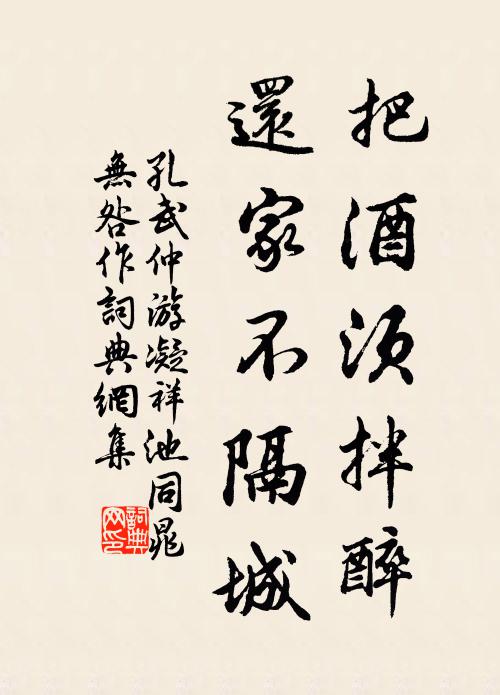 把酒須拌醉
還家不隔城
孔武仲游凝祥池同晁
無咎作詞典網集
詞典网印